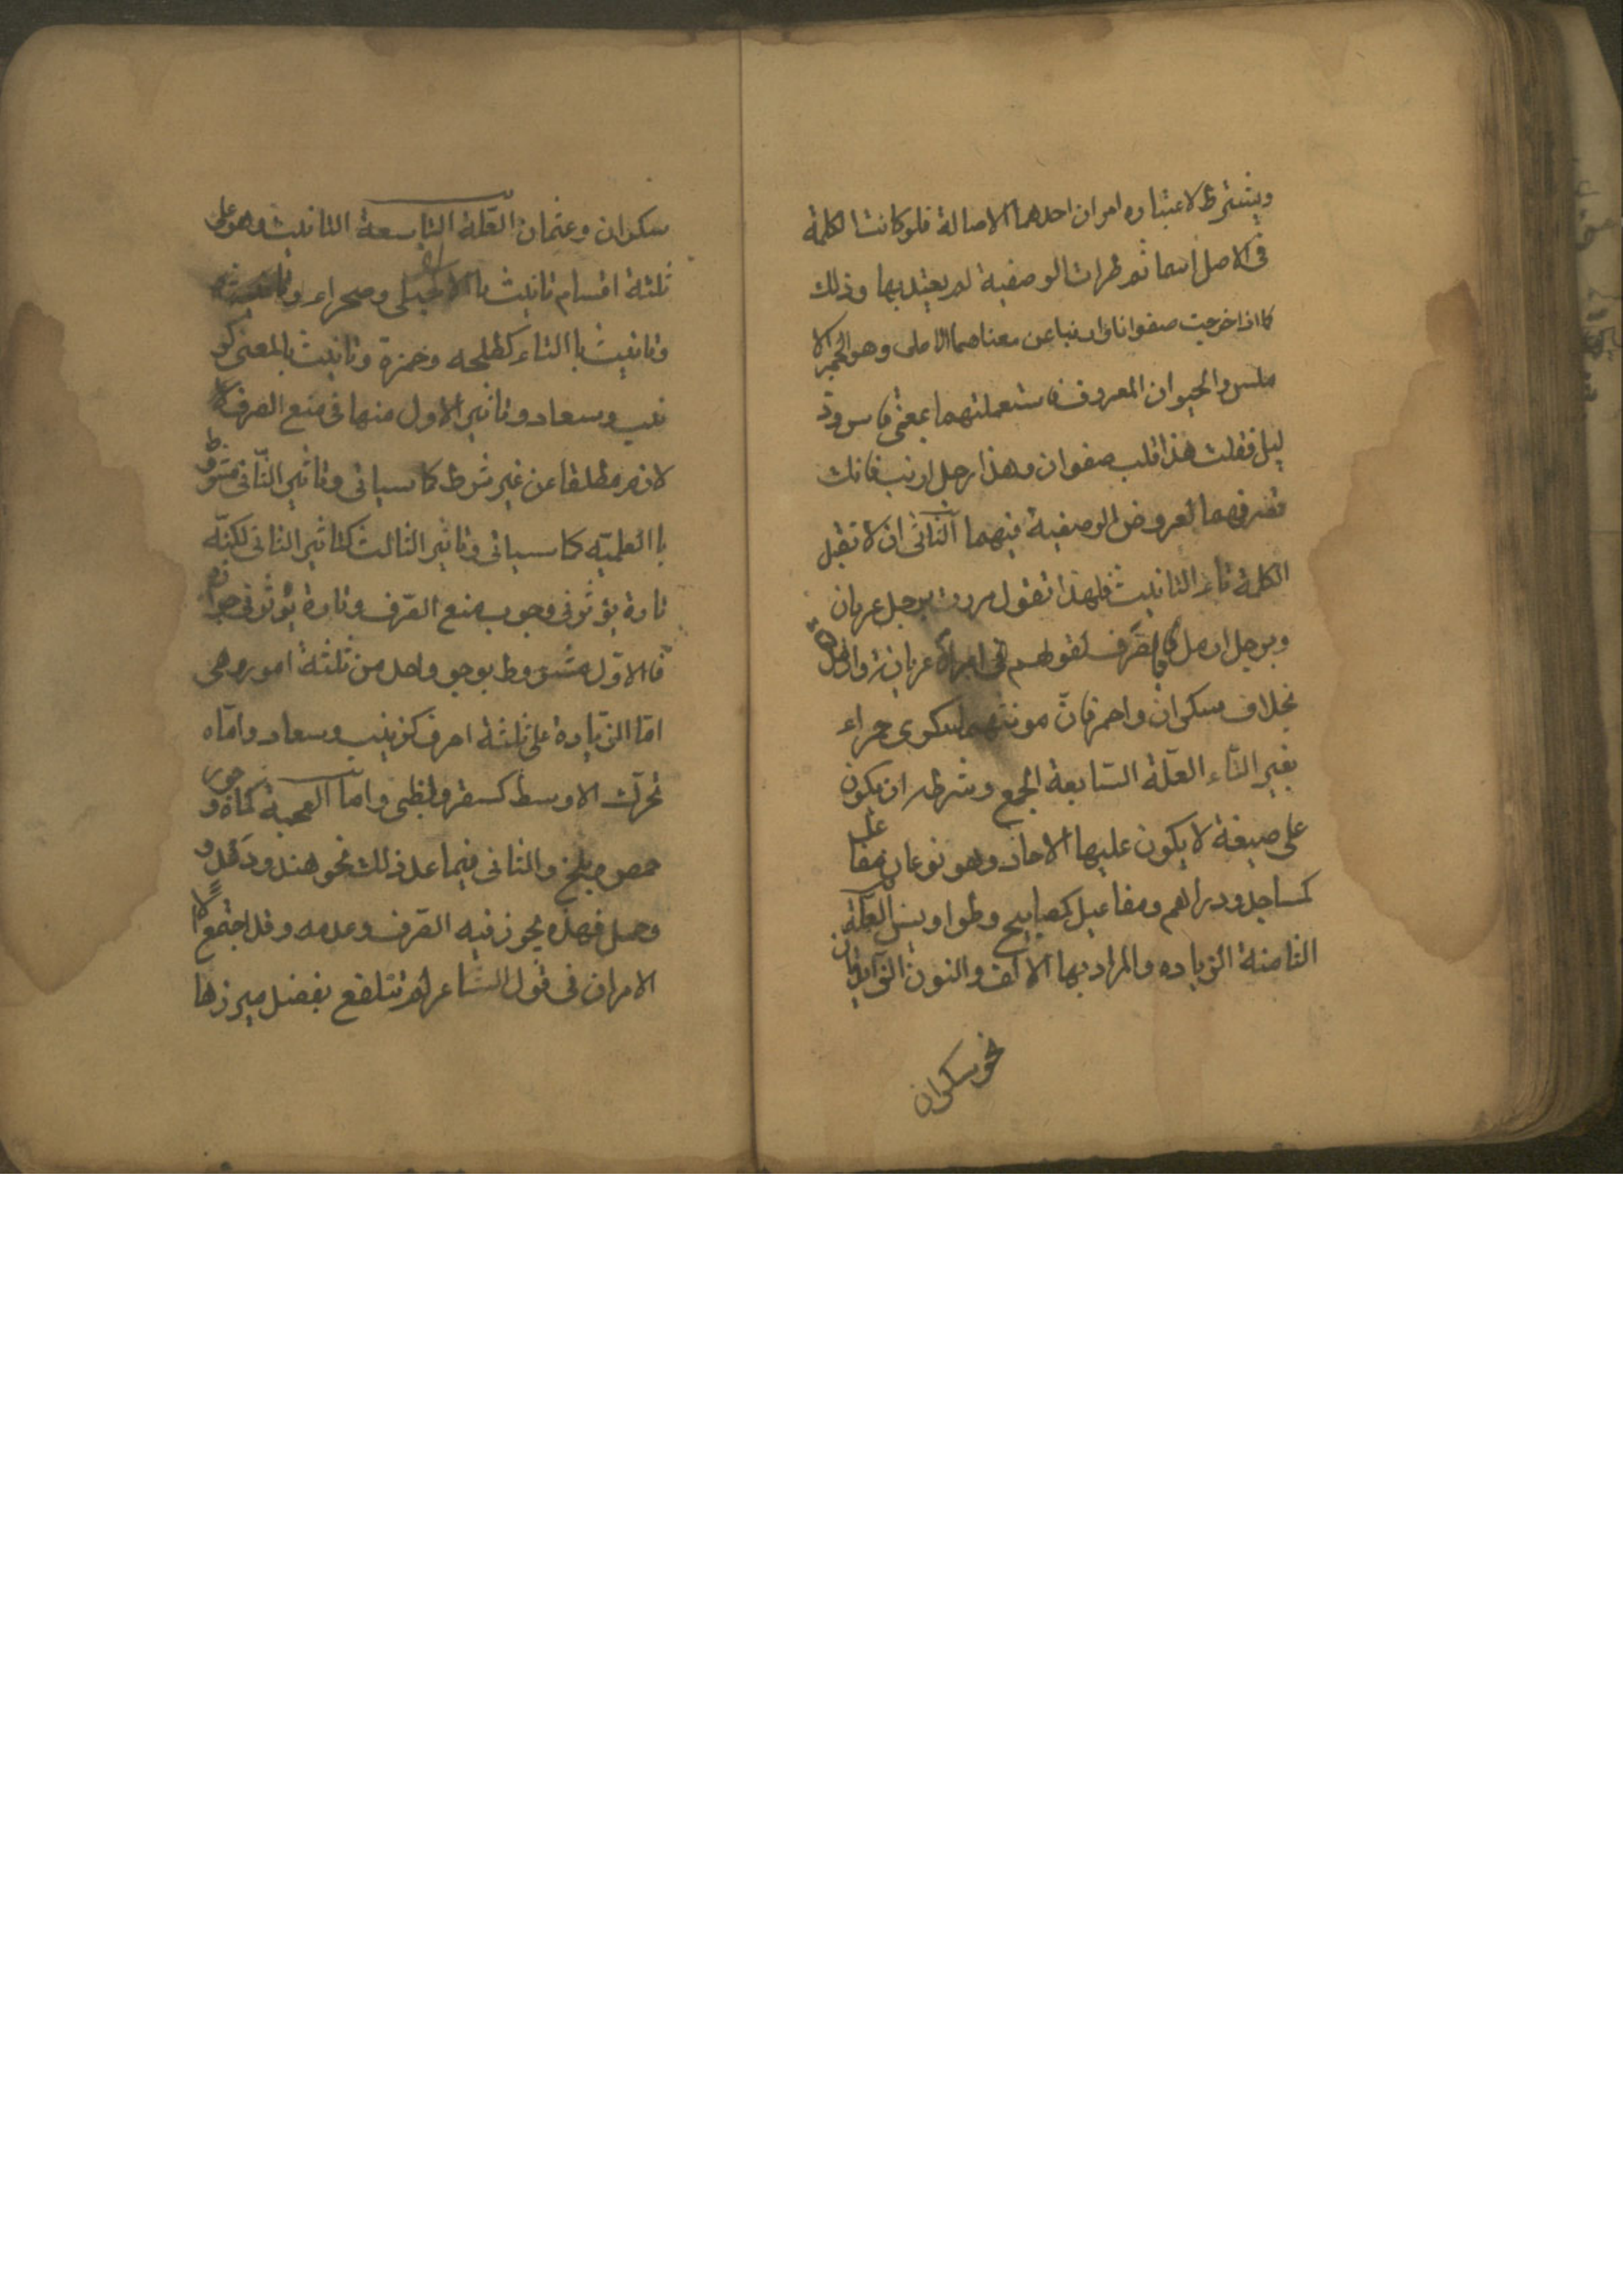 ويشترط لاعتباره امران احدهما الاصالة فلو كانت الكلمة
في الاصل اسما ثم طرات الوصفية لم يعتد بها وذلك
كما اذا اخرجت صفوانا وارنبا عن معناهما الاصلى وهو الحجر الا
ملس والحيوان المعروف فاستعملتهما بمعنى قاس وذ
ليل فقلت هذا قلب صفوان وهذا رجل ارنب فانك
تصرفهما لعروض الوصفية فيهما الثانى ان لا تقبل
الكلمة تاء التانيث فلهذا تقول مررت برجل عريان
وبرجل ارمل بالصرف لقولهم فى امرأة عريانة وارملة
بخلاف سكران واحمر فان مونثهما سكرى حمراء
بغير التاء العلّة السّابعة الجمع وشرطه ان يكون
على صيغة لا يكون عليها الاحاد وهو نوعان مفاعل
كمساجد ودراهم ومفاعيل كمصابيح وطواويس العلّة
الثامنة الزياده والمراد بها الالف والنون الزّايدتان
نحو سكران
سكران وعثمان العلّة التاسعة التانيث وهو على
ثلثة اقسام تانيث بالالف كحبلى وصحراء
وتانيث باالتاء كطلحه وحمزة وتانيث بالمعنى كز
ينب وسعاد وتاثير الاول منها فى منع الصرف
لازم مطلقا من غير شرط كما سياتى وتاثير الثّانى مشروط
باالعلميّه كما سياتى وتاثير الثالث كتاثير الثانى لكنّه
تارة يؤثر فى وجوب منع الصّرف وتارة يؤثر فى جوازه
فالاوّل مشروط بوجو واحد من ثلثة امور وهى
امّا الزّيادة على ثلثة احرف كزينب وسعاد وامّا
تحرّك الاوسط كسقر ولظى وامّا العجمة كماه وجور و
حمص وبلخ والثانى فيما عدا ذلك نحو هند ودعد و
وجمل فهذه يجوز فيه الصّرف وعدمه وقد اجتمع
الامران فى قول الشاعر لم تتلفع بفضل ميزرها